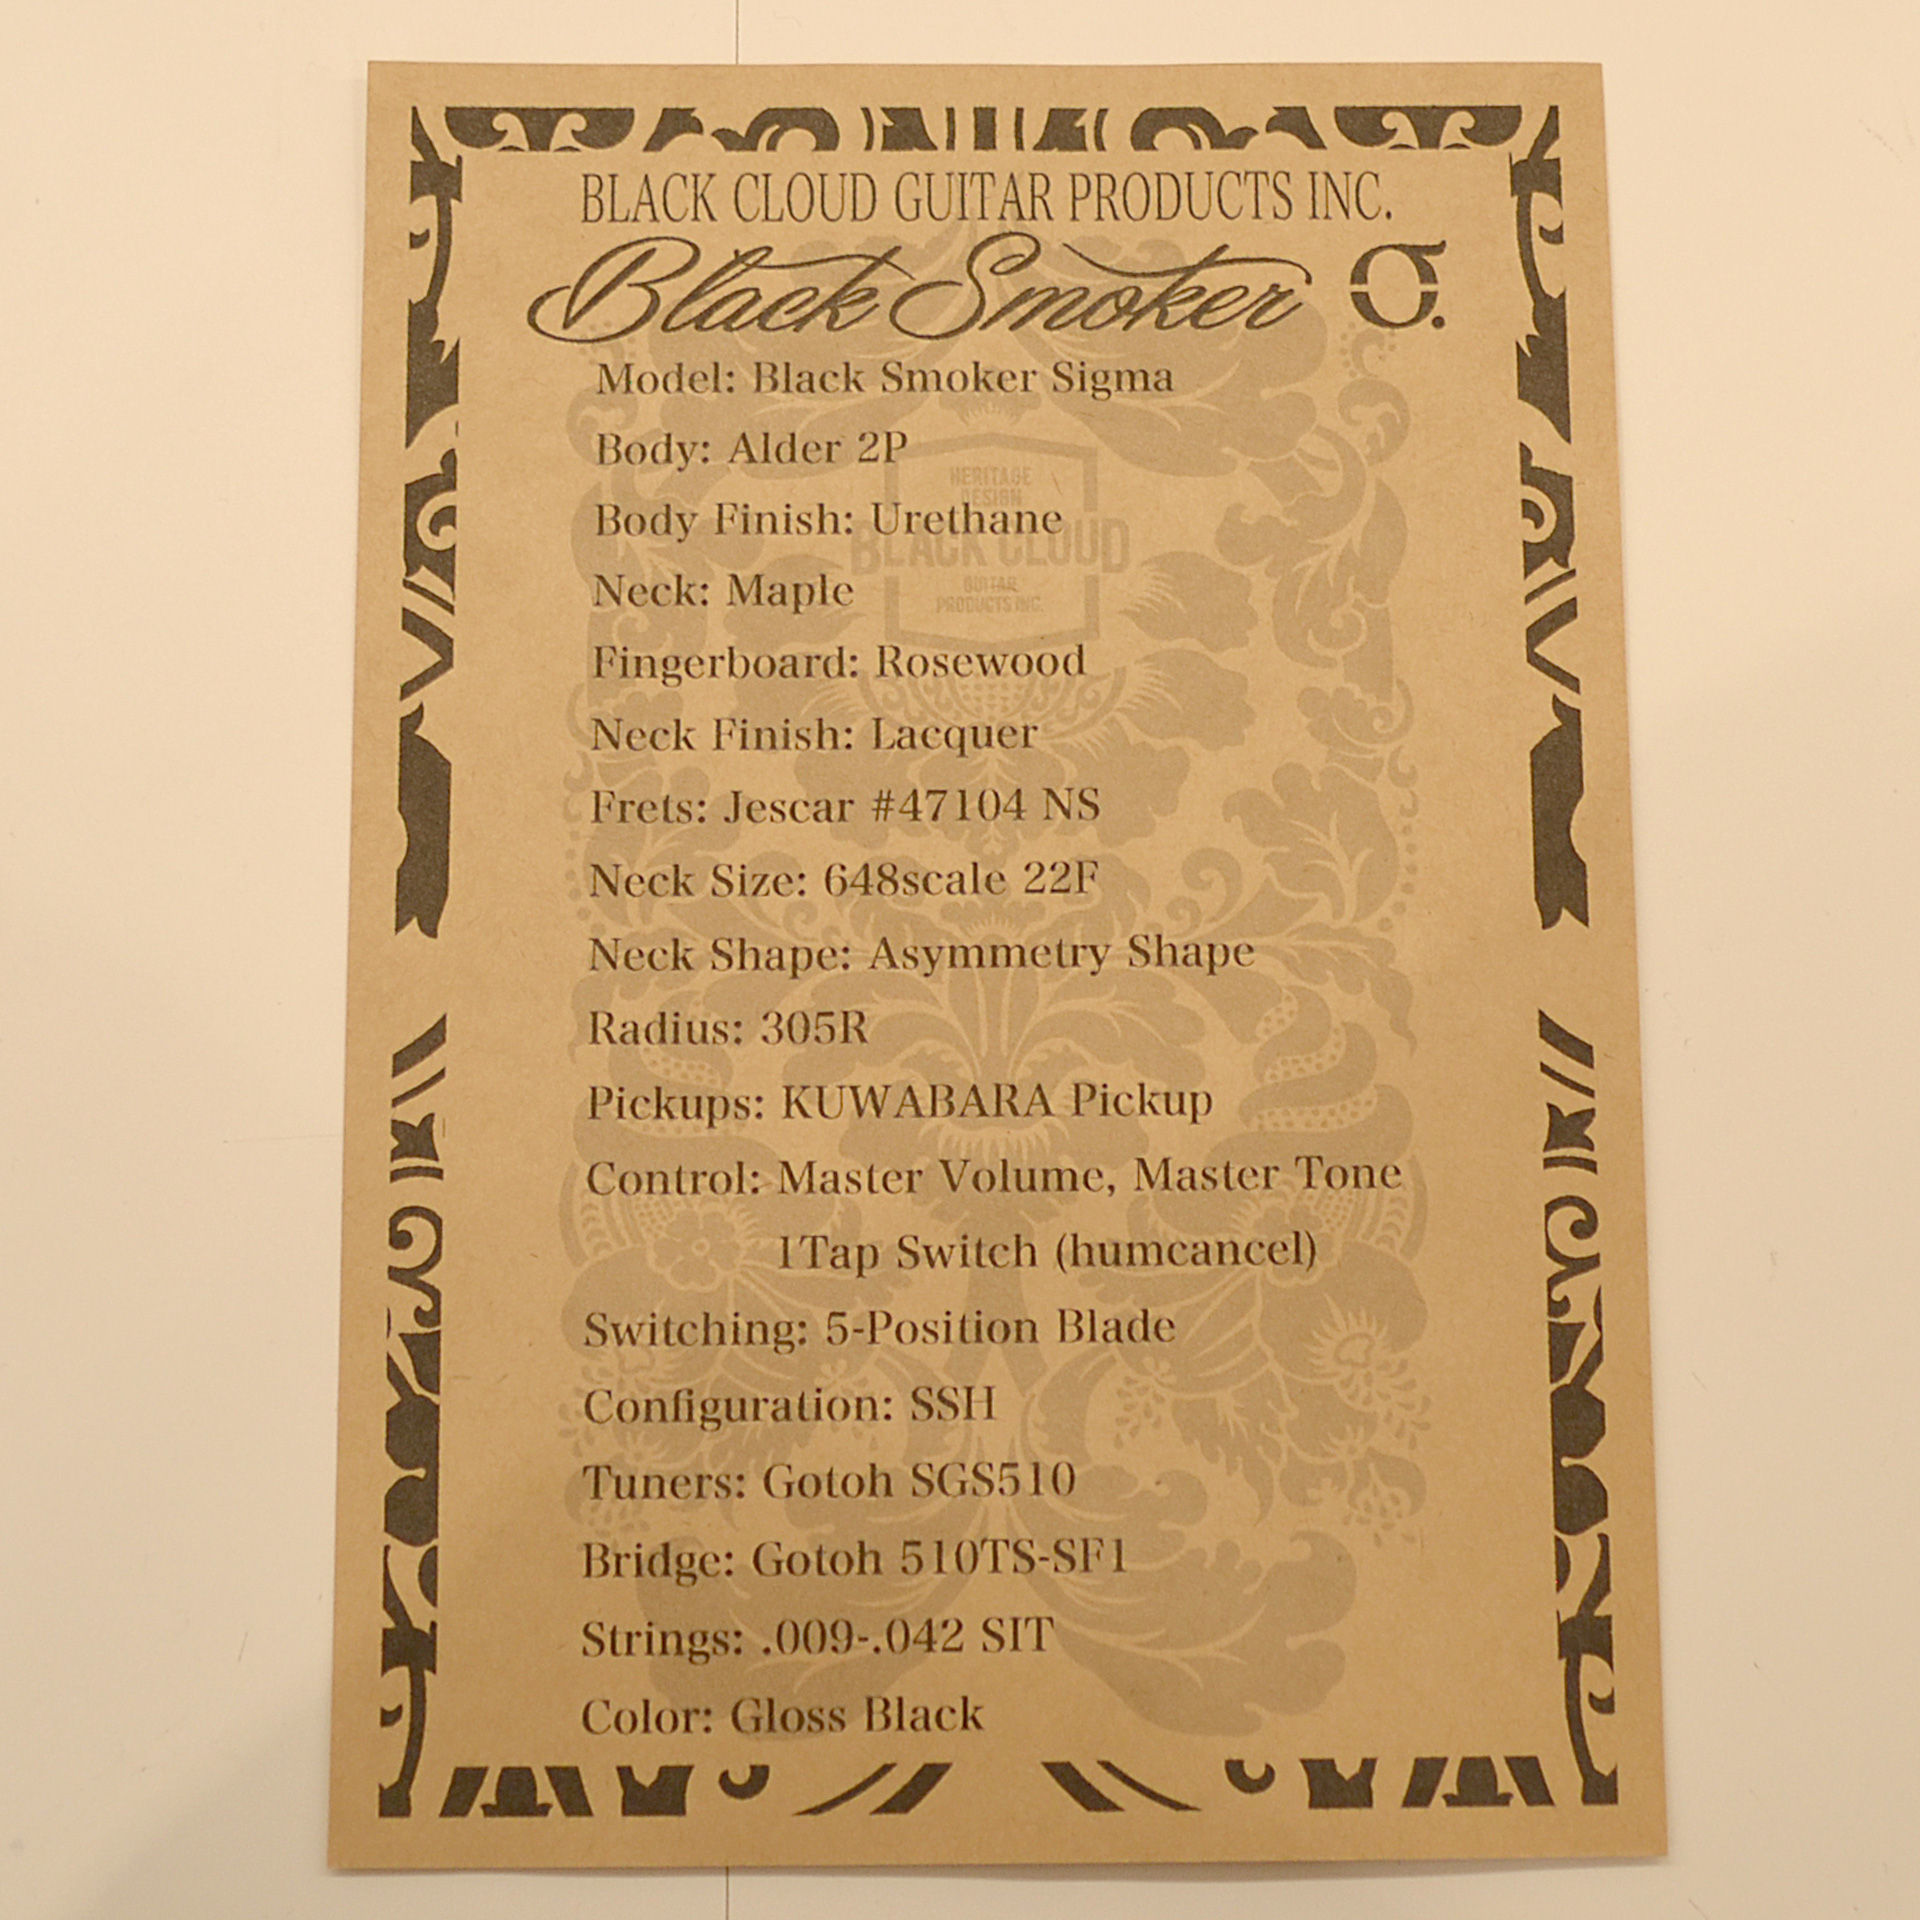 BLACK CLOUD GUITAR PRODUCTS INC.
Black Smoker σ.
Model: Black Smoker Sigma
Body: Alder 2P
HERITAGE
DESIGN
Body Finish: Urethane
BLACK CLOUD
GUITAR
PRODUCTS INC.
Neck: Maple
Fingerboard: Rosewood
Neck Finish: Lacquer
Frets: Jescar #47104 NS
Neck Size: 648scale 22F
Neck Shape: Asymmetry Shape
Radius: 305R
Pickups: KUWABARA Pickup
Control: Master Volume, Master Tone
1Tap Switch (humcancel)
Switching: 5-Position Blade
Configuration: SSH
Tuners: Gotoh SGS510
Bridge: Gotoh 510TS-SF1
Strings: .009-.042 SIT
Color: Gloss Black